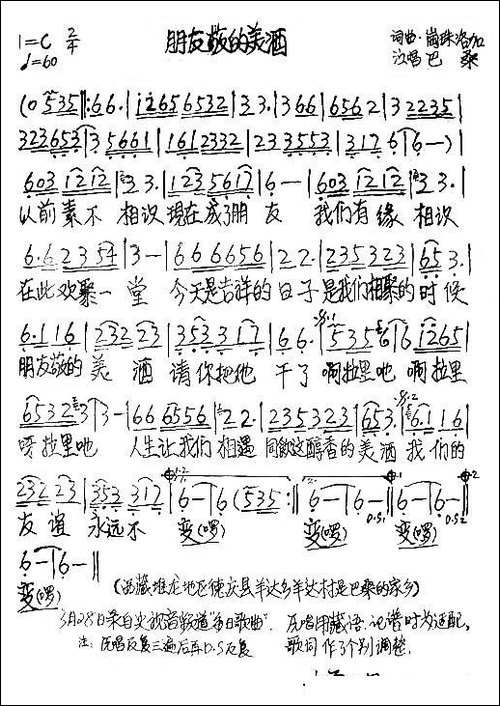 1=C 2/4
♩=60
朋友敬的美酒
词曲:崗珠洛加
演唱 巴 桑
(0 535 ‖: 6 6. | 12656532 | 3 3. | 3 6 6 | 656 2 | 3 2235 |
323653 | 3 5661 | 1612332 | 23 3553 | 317 6 | 6 —) |
603 1212 | 3 3. | 123 5617 | 6 — | 603 1212 | 3 3. |
以前素不 相识 现在成了朋 友 我们有缘 相识
6.6 2 3 54 | 3 — | 6 6 6656 | 2 2. | 235 323 | 65 3. |
在此欢聚一 堂 今天是吉祥的 日子 是我们相聚的 时候
6.1 1 6 | 232 23 | 353 317 | 6 6. | 535 6 | 6 1265 |
朋友敬的 美 酒 请你把他 干了 啊拉里吔 啊拉里
6532 3 | 3 — | 66 6556 | 2 2. | 235323 | 653. | 6.1 1 6 |
呀拉里吔 人生让我们 相遇 同飲这醇香的 美酒 我们的
232 23 | 353 317 | 6 — | 6 (535 :‖ 6 — | 6 — | 6 — | 6 — ‖
友 谊 永远不 变(啰) 变(啰) 变(啰)
D.S1 D.S2
6 — | 6 — ‖
变(啰)
(西藏堆龙地区德庆县羊达乡羊达村是巴桑的家乡)
3月28日录自央视音频道“每日歌曲”. 原唱用藏语.记谱时为适配,
注:原唱反复三遍后再D.S反复 歌词作了个别调整.